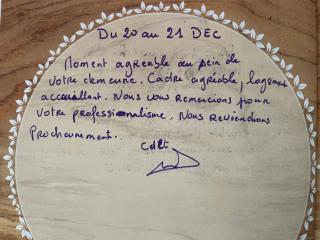 Du 20 au 21 DEC
Moment agreable au sein de
votre demeure. Cadre agréable, logement
accueillant. Nous vous remercions pour
votre professionalisme. Nous reviendrons
Prochainement.
Cdlt